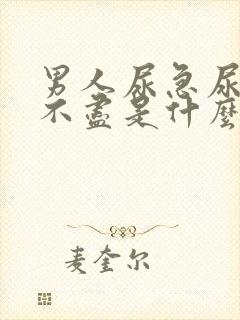 男人尿急尿
不盡是什麼
麦奎尔